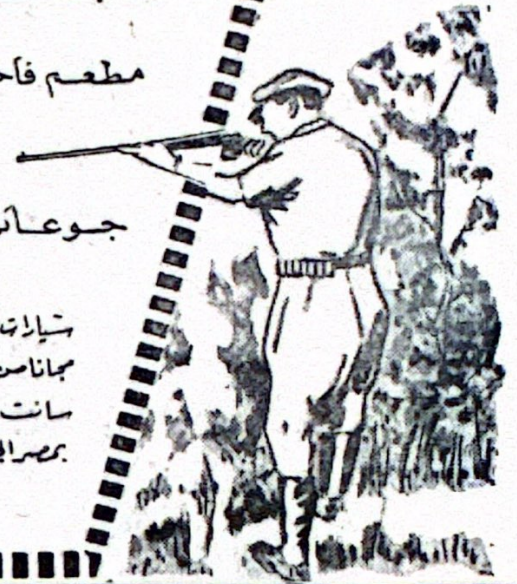 مطعم فاخ
جو عائ
سيارات
مجانا من
سانت
بمصر ال